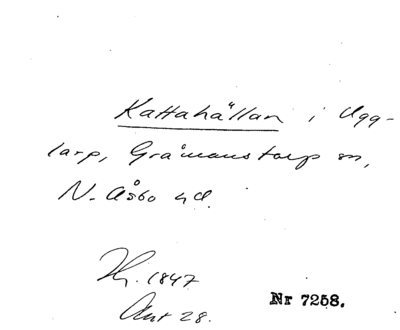 Kattahällan i Ugg-
larp, Gråmanstorp sn,
N. Åsbo hd.
Hr. 1847
Akt 28.
Nr 7258.